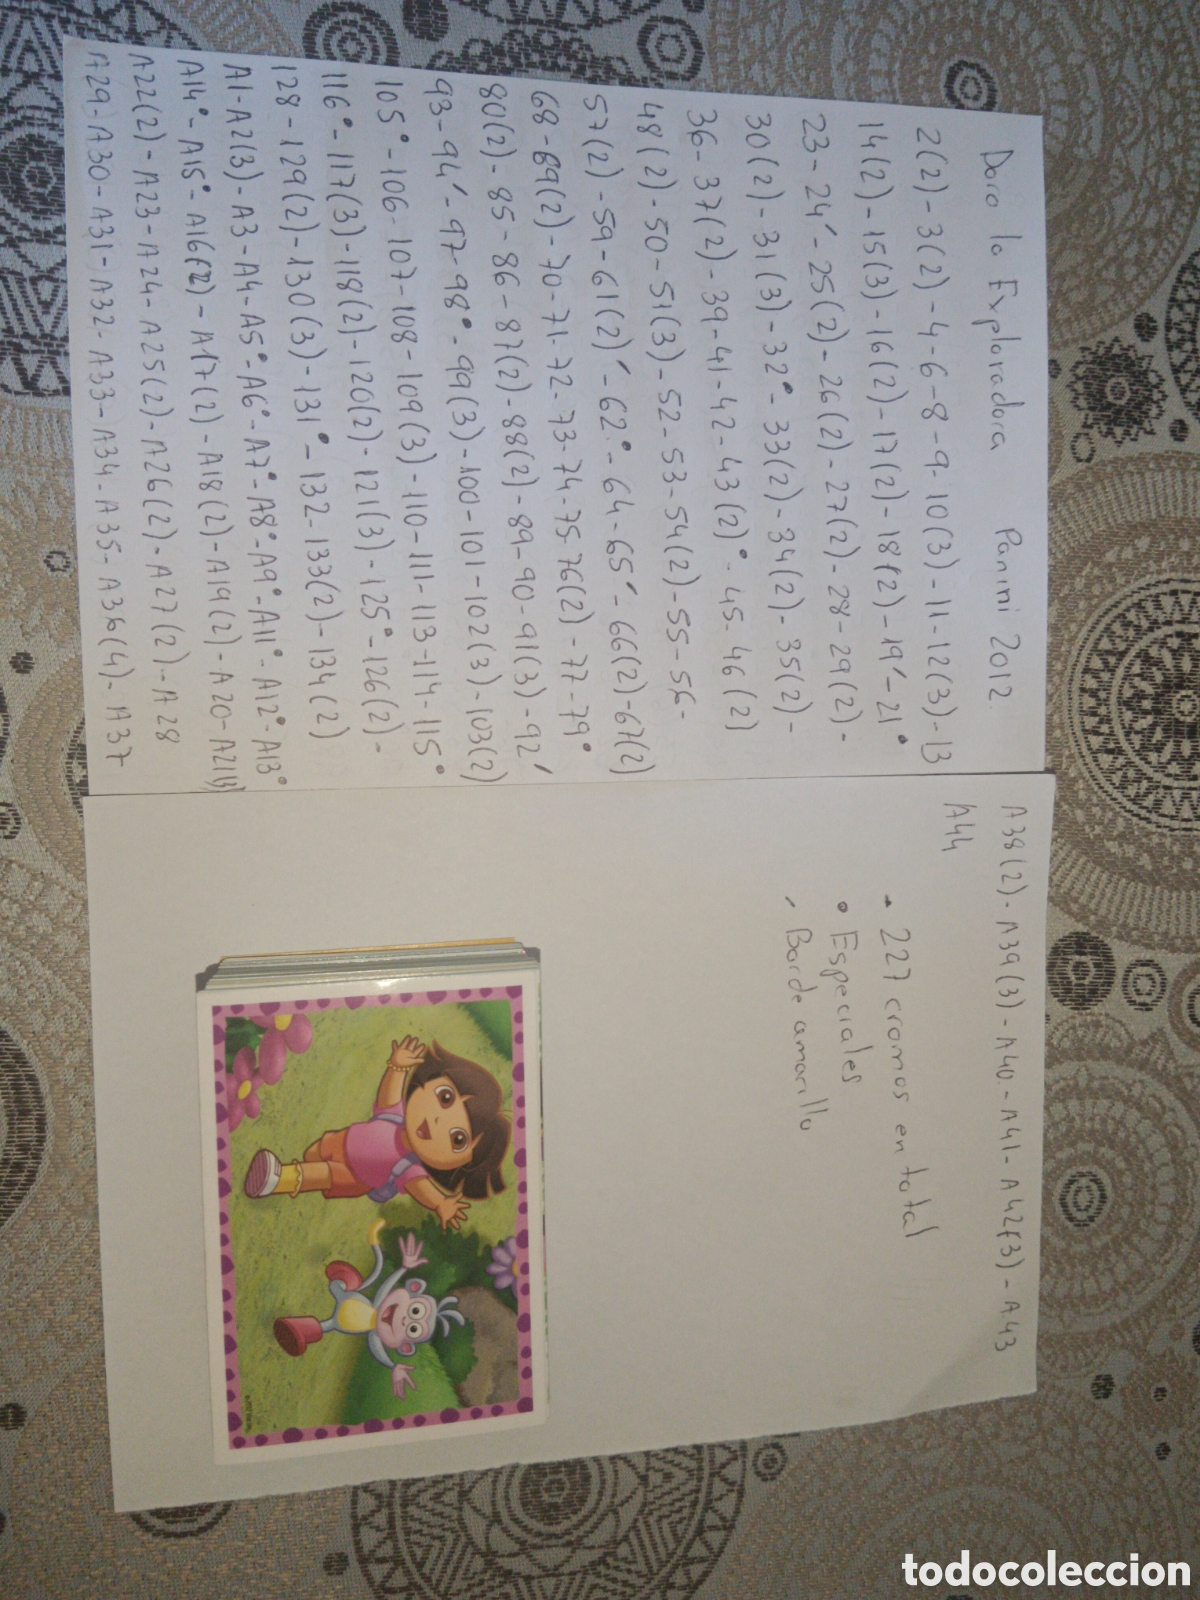 Dora la Exploradora Panini 2012.
2(2)-3(2)-4-6-8-9-10(3)-11-12(3)-13
14(2)-15(3)-16(2)-17(2)-18(2)-19´-21°
23-24´-25(2)-26(2)-27(2)-28-29(2)-
30(2)-31(3)-32°-33(2)-34(2)-35(2)-
36-37(2)-39-41-42-43(2)°-45-46(2)
48(2)-50-51(3)-52-53-54(2)-55-56-
57(2)-59-61(2)´-62°-64-65´-66(2)-67(2)
68-69(2)-70-71-72-73-74-75-76(2)-77-79°
80(2)-85-86-87(2)-88(2)-89-90-91(3)-92´
93-94´-97-98°-99(3)-100-101-102(3)-103(2)
105°-106-107-108-109(3)-110-111-113-114-115°
116°-117(3)-118(2)-120(2)-121(3)-125°-126(2)-
128-129(2)-130(3)-131°-132-133(2)-134(2)
A1-A2(3)-A3-A4-A5°-A6°-A7°-A8°-A9°-A11°-A12°-A13°
A14°-A15°-A16(2)-A17(2)-A18(2)-A19(2)-A20-A21(3)
A22(2)-A23-A24-A25(2)-A26(2)-A27(2)-A28
A29-A30-A31-A32-A33-A34-A35-A36(4)-A37
A38(2)-A39(3)-A40-A41-A42(3)-A43
A44
- 227 cromos en total
• Especiales
´ Borde amarillo
todocoleccion